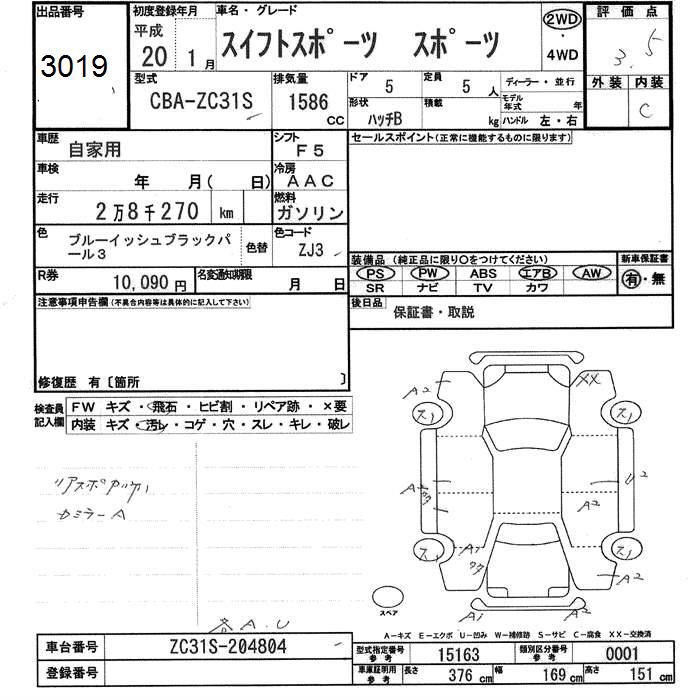 出品番号
3019
初度登録年月
平成
20 1月
車名・グレード
スイフトスポーツ スポーツ
2WD
・
4WD
評価点
3.5
外装 内装
C
型式
CBA-ZC31S
排気量
1586
CC
ドア
5
定員
5 人
ディーラー・並行
形状
ハッチB
積載
kg
モデル年式 年
ハンドル 左・右
車歴
自家用
シフト
F5
セールスポイント(正常に機能するものに限ります)
車検
年 月( 日)
冷房
AAC
走行
2万8千270 km
燃料
ガソリン
色
ブルーイッシュブラックパール3
色替
色コード
ZJ3
装備品(純正品に限り〇をつけてください)
新車保証書
PS PW ABS エアB AW
SR ナビ TV カワ
有・無
R券
10,090円
名変通知期限
月 日
後日品
保証書・取説
注意事項申告欄(不具合内容等は具体的に記入して下さい)
修復歴 有〔箇所 〕
検査員記入欄
FW キズ・飛石・ヒビ割・リペア跡・×要
内装 キズ・汚レ・コゲ・穴・スレ・キレ・破レ
A2
XX
ス1
ス1
U2
A2
ス1
ス1
A1
A2
A1
A2
スペア
カミラーA
各A.U
A-キズ E-エクボ U-凹み W-補修跡 S-サビ C-腐食 XX-交換済
車台番号
ZC31S-204804
登録番号
型式指定番号
参考
15163
類別区分番号
参考
0001
車庫証明用
参考
長さ
376 cm
幅
169 cm
高さ
151 cm